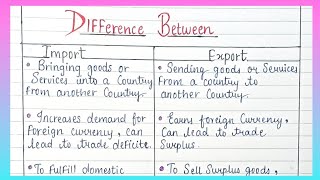 Difference Between
Import
Export
• Bringing goods or
Services into a Country
from another Country.
• Sending goods or Services
from a country to
another Country.
• Increases demand for
Foreign currency, can
lead to trade deficite.
• Earns foreign Currency,
Can lead to trade
Surplus.
• To Fulfill domestic
• To Sell Surplus goods,